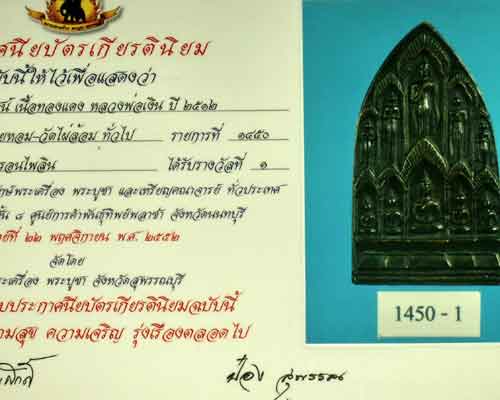 ศนียบัตรเกียรตินิยม
ับนี้ให้ไว้เพื่อแสดงว่า
เนื้อทองแดง หลวงพ่อเงิน ปี ๒๕๑๒
ยหอม-วัดไผ่ล้อม ทั่วไป รายการที่ ๑๔๕๐
รอนไพลิน ได้รับรางวัลที่ ๑
พระเครื่อง พระบูชา และเหรียญคณาจารย์ ทั่วประเทศ
ั้น ๘ ศูนย์การค้าพันธุ์ทิพย์พลาซ่า จังหวัดนนทบุรี
ที่ ๒๒ พฤศจิกายน พ.ศ. ๒๕๕๒
จัดโดย
ระเครื่อง พระบูชา จังหวัดสุพรรณบุรี
บประกาศนียบัตรเกียรตินิยมฉบับนี้
ามสุข ความเจริญ รุ่งเรืองตลอดไป
ป๋อง สุพรรณ
1450 - 1